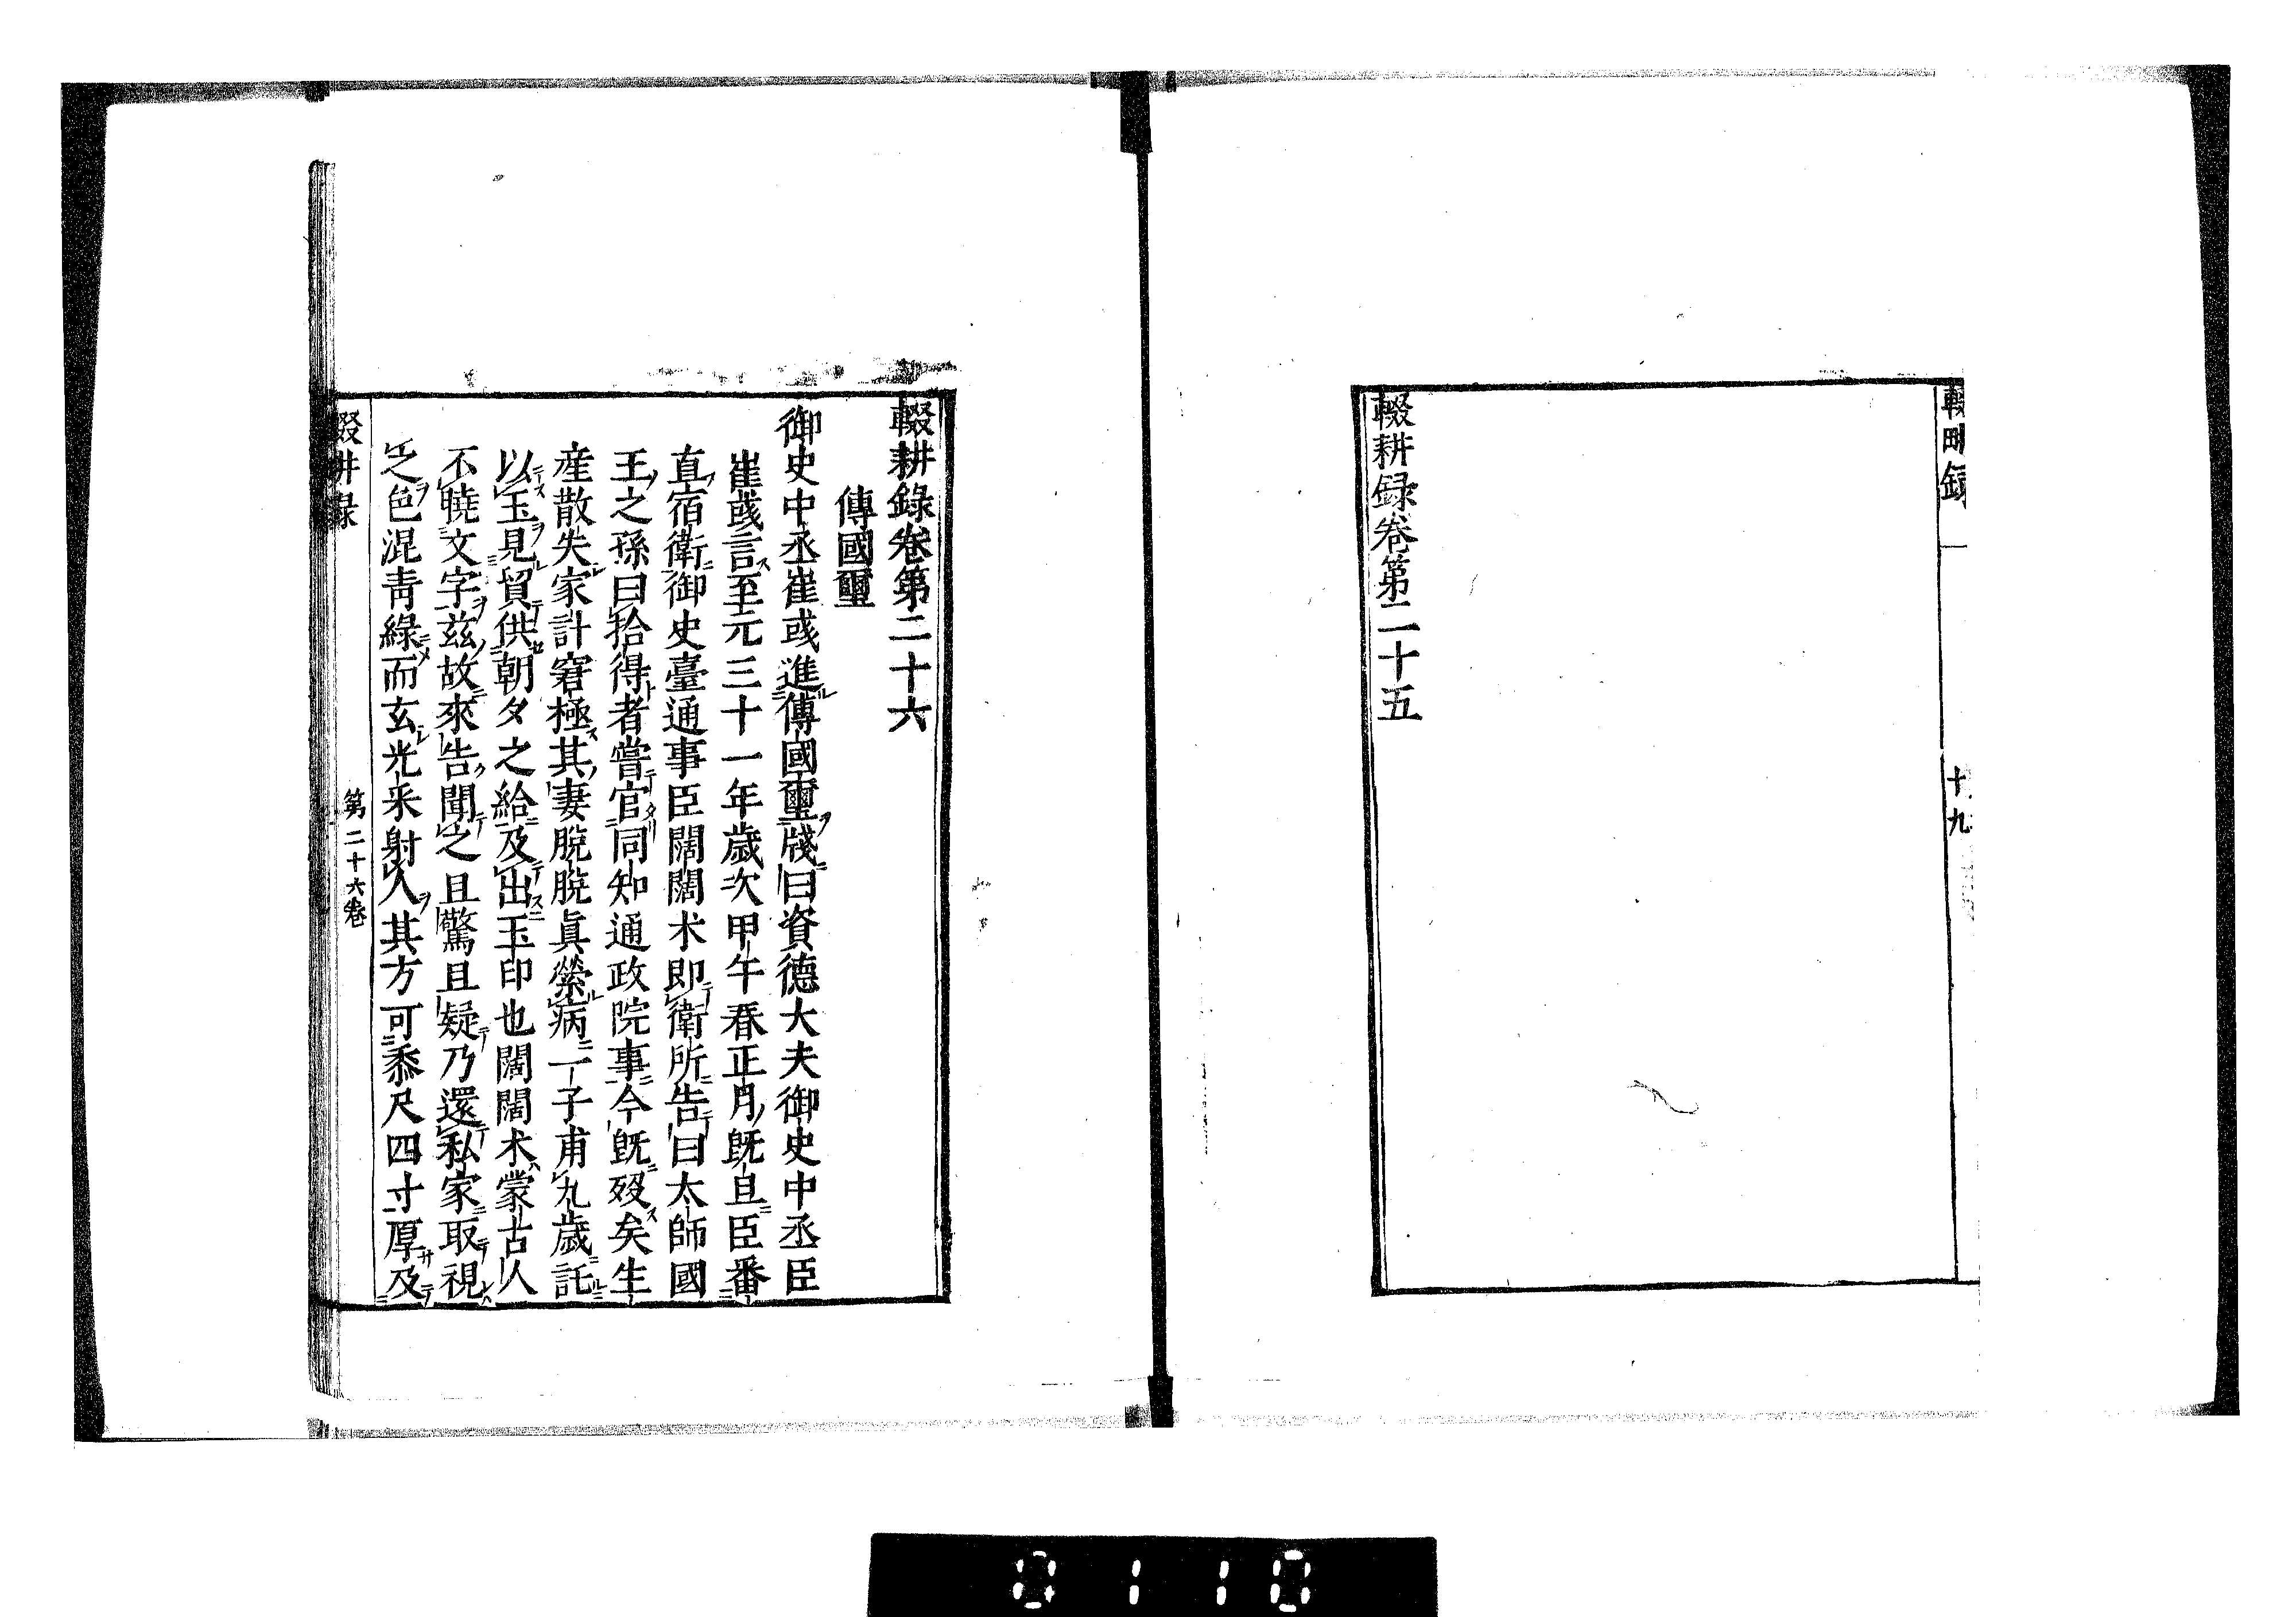 輟耕録
十九
輟耕録卷第二十五
輟耕錄卷第二十六
傳國璽
御史中丞崔彧進傳國璽牋曰資德大夫御史中丞臣
崔彧言至元三十一年歲次甲午春正月既旦臣番
直宿衛御史臺通事臣闊闊朮即衛所告曰太師國
王之孫曰拾得者嘗官同知通政院事今既歿矣生
産散失家計窘極其妻脫脫眞縈病一子甫九歲託
以玉見貿供朝夕之給及出玉印也闊闊朮蒙古人
不曉文字茲故來告聞之且驚且疑乃還私家取視
之色混靑綠而玄光采射人其方可黍尺四寸厚及
輟耕录
第二十六卷
0110